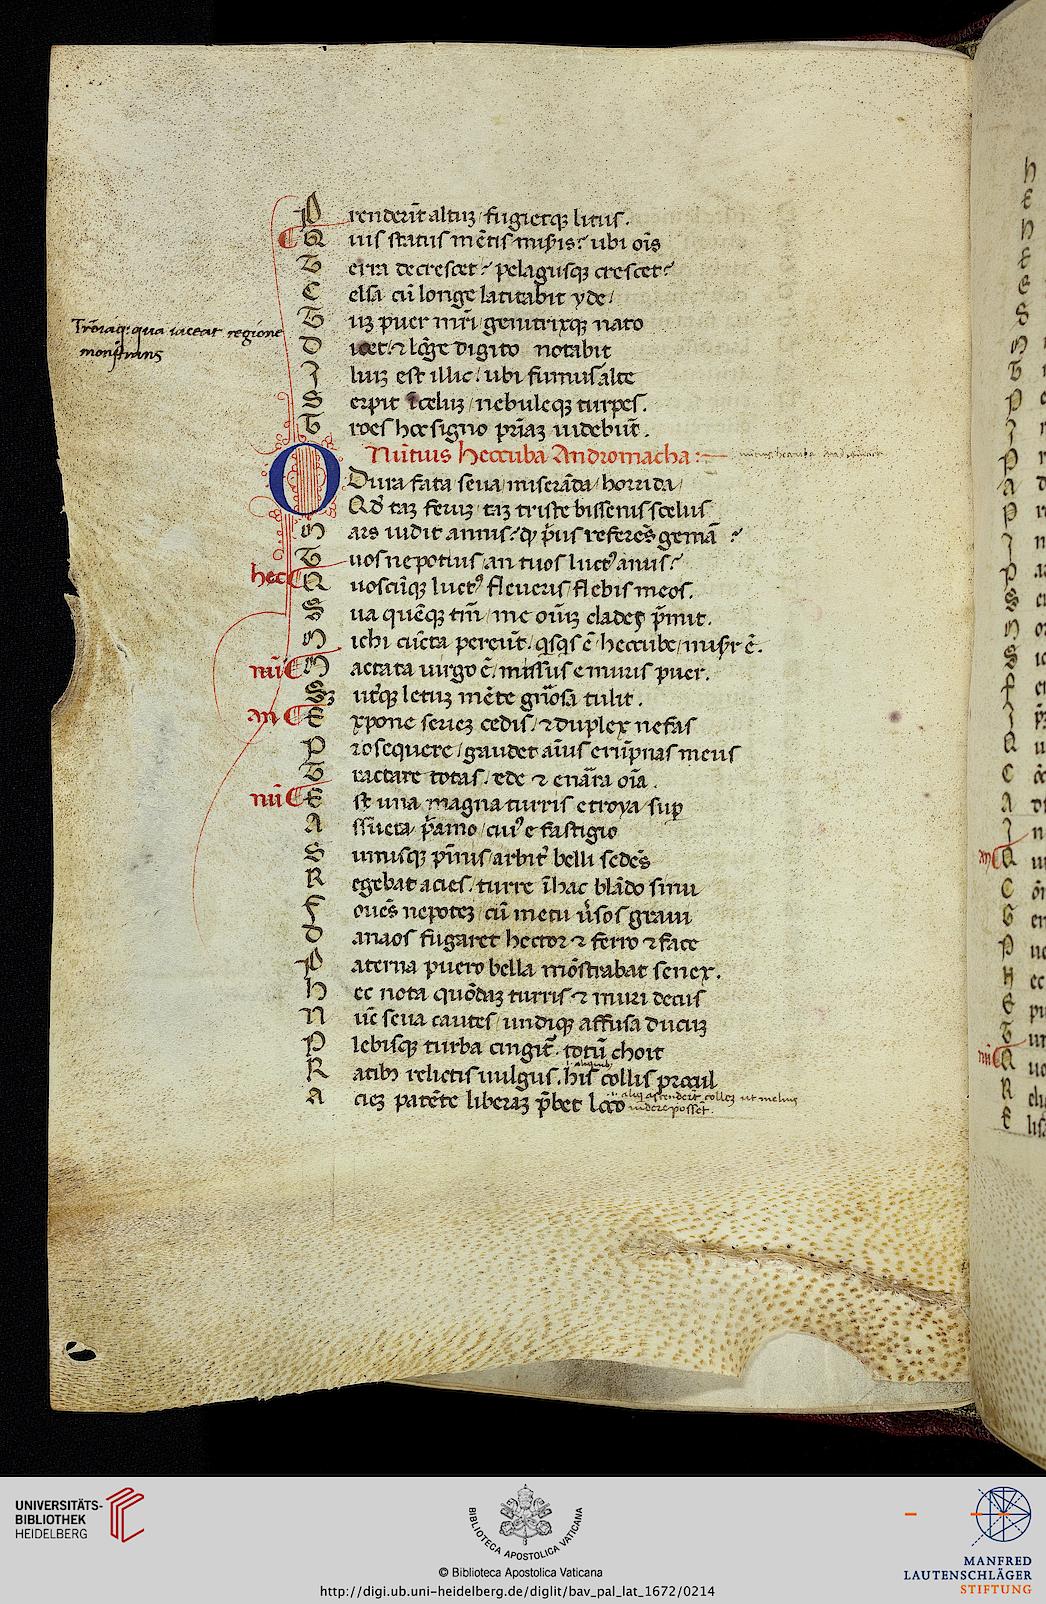 P renderit altuz fugietqz litus.
Q uis status mētis mīs̄is? ubi oīs
T erra decrescet? pelagusqz crescet?
C elsa cū longe latitabit yde/
T uz puer mr̄i genitrixqz nato
Troiaqz qua iaceat regione
monstrans
D icet. ⁊ lōge digito notabit
I liuz est illic/ ubi fumus alte
S erpit ī celuz/ nebuleqz turpes.
T roes hoc signo pr̄iaz uidebūt.
Nūtius heccuba Andromacha:
O Dura fata seua/ miserāda/ horrida/
Qd̄ taz feruz/ taz triste bissenis scelus
M ars uidit annis? qd p̄us referēs gemā?
T uos ne potius/ an tuos luctꝰ anus?
hec Q uoscūqz luctꝰ fleueris/ flebis meos.
S ua quēqz tm̄/ me oīuz clades p̄mit.
M ichi cūcta pereūt. qsqs ē heccube/ miser ē.
nū M actata uirgo ē/ missus e muris puer.
Sz ut̄qz letuz mēte gn̄osa tulit.
an E xpone seriez cedis/ ⁊ duplex nefas
P rosequere/ gaudet aīus erūpnas meus
T ractare totas. ede ⁊ enarra oīa.
nū E st una magna turris e troya/ sup
A ssueta p̄amo/ cuiꝰ e fastigio
S umisqz pīnis/ arbitꝰ belli sedēs
R egebat acies. turre ī hac blādo sinu
F ouēs nepotez/ cū metu ūsos graui
D anaos fugaret hector ⁊ ferro ⁊ face
P aterna puero bella mōstrabat senex.
H ec nota quōdaz turris ⁊ muri decus
N ūc seua cautes/ undiqz affusa ducuz
P lebisqz turba cingit̄. totū choit
R atibz relictis uulgus. his collis procul
aliquibus
A ciez patēte liberaz p̄bet loco
alii ascenderūt collez ut melius
uidere posset.
UNIVERSITÄTS-
BIBLIOTHEK
HEIDELBERG
BIBLIOTECA APOSTOLICA VATICANA
© Biblioteca Apostolica Vaticana
http://digi.ub.uni-heidelberg.de/diglit/bav_pal_lat_1672/0214
MANFRED
LAUTENSCHLÄGER
STIFTUNG